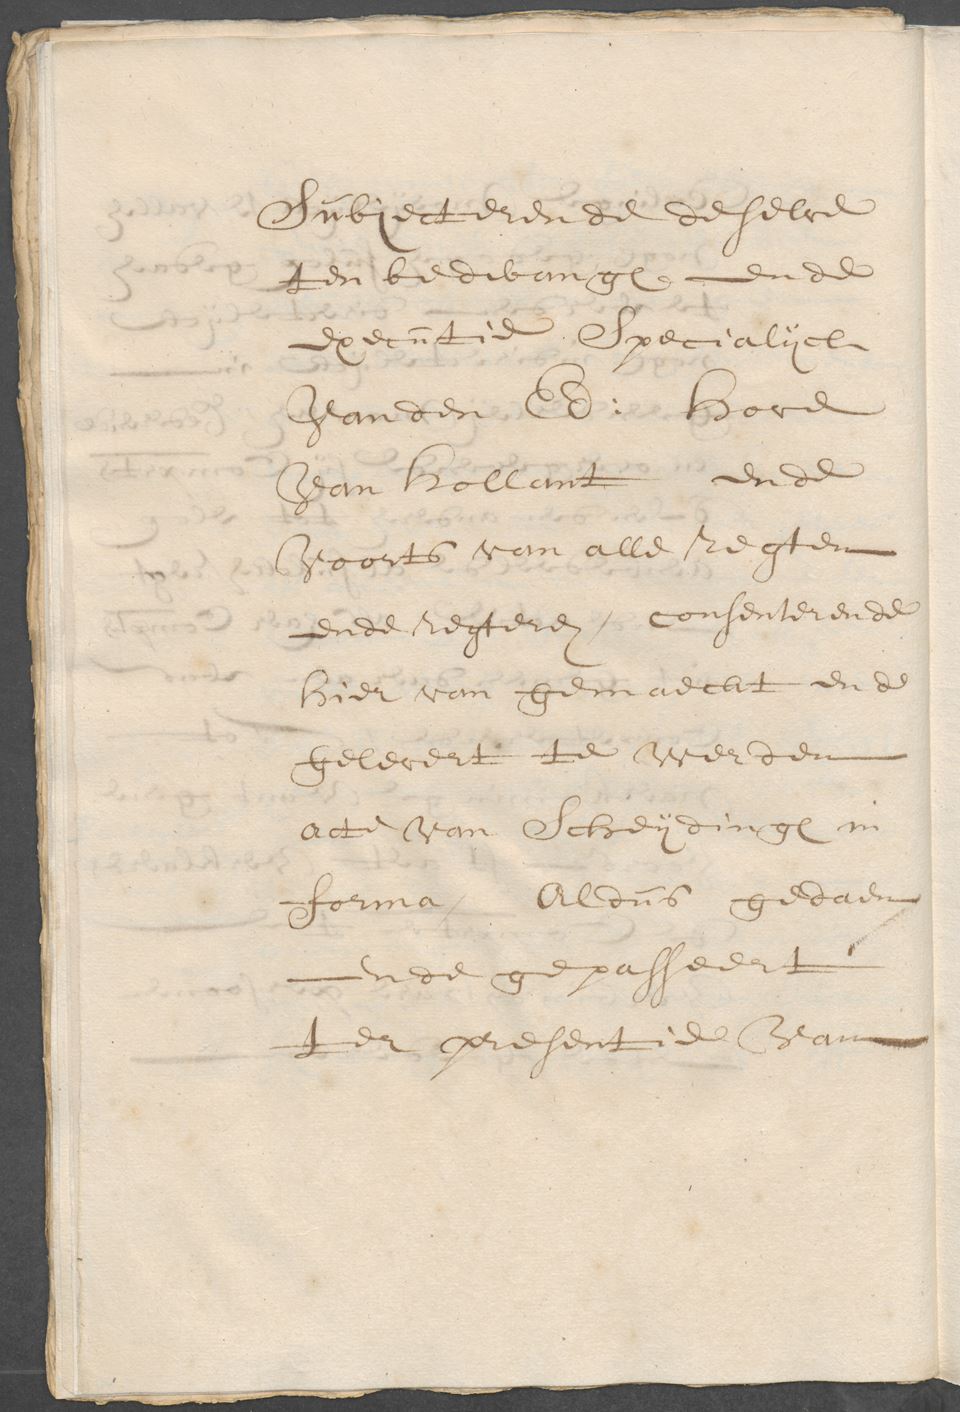 Subjecterende deselve
ten bedwange ende
executie Specialyck
vanden Ed: hove
van hollant ende
voorts van alle regten
ende regteren, consenterende
hier van gemaeckt ende
gelevert te werden
acte van Scheydinge in
forma, Aldus gedaen
ende gepasseert
ter presentie van